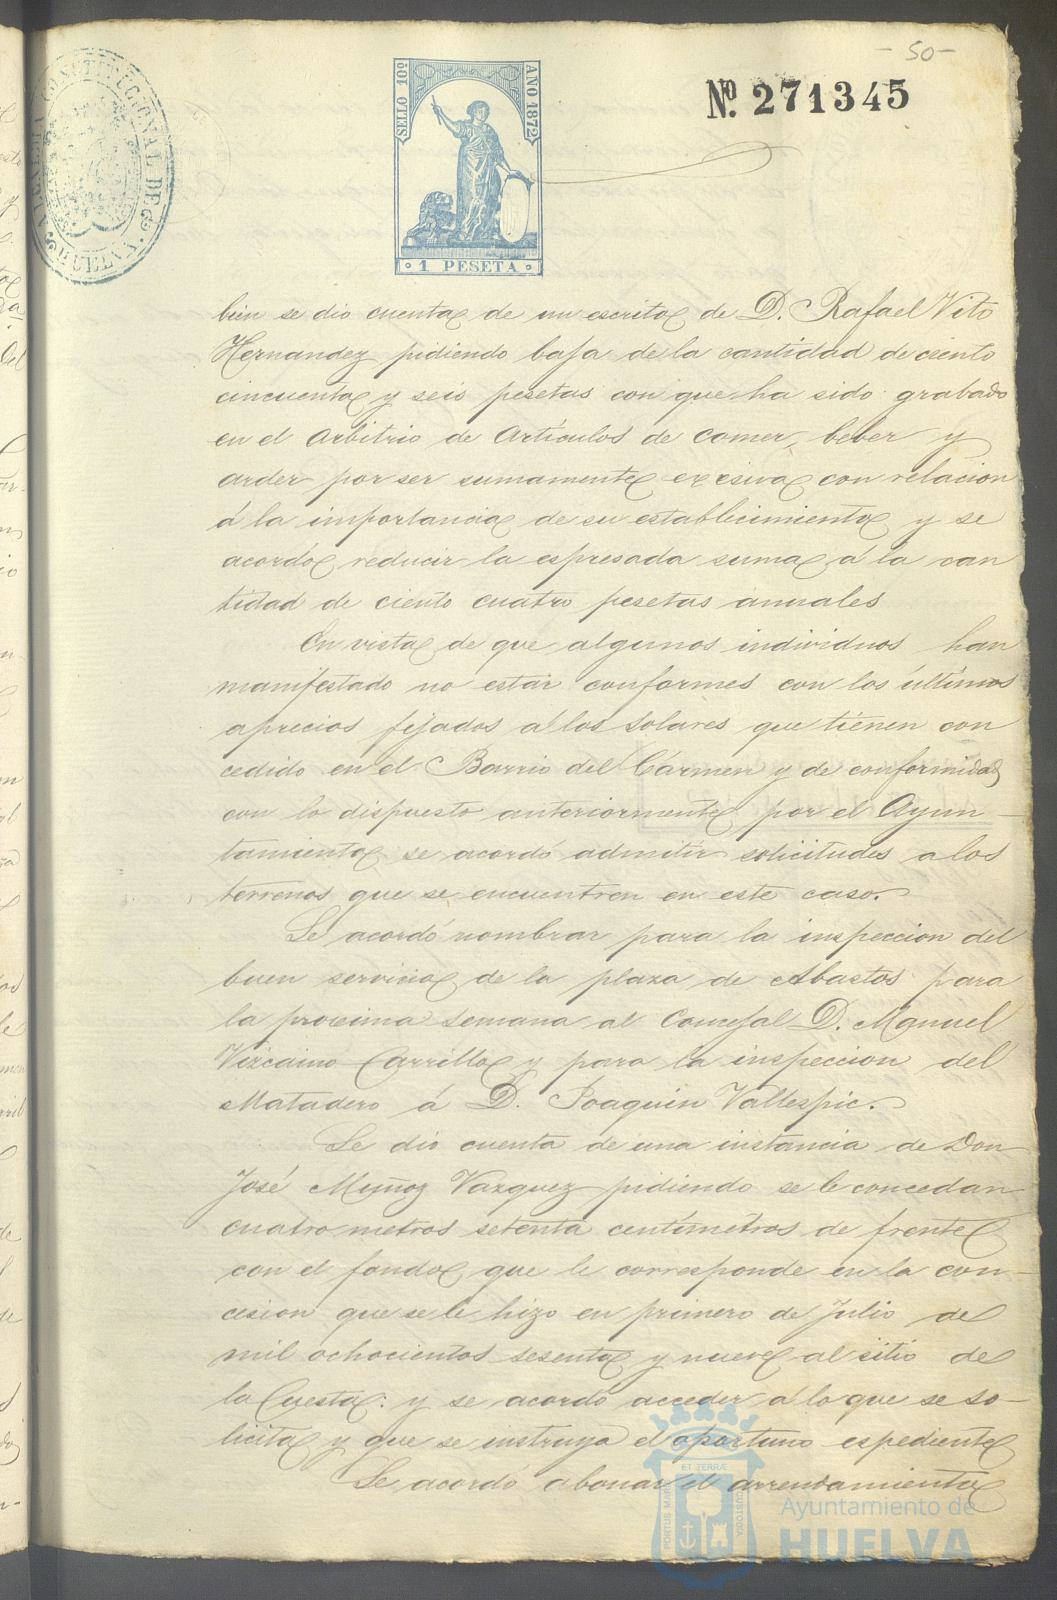 -50-
Nº. 271345
SELLO 10º
AÑO 1872
1 PESETA
ALCALDIA CONSTITUCIONAL DE HUELVA
bien se dio cuenta de un escrito de D. Rafael Vito
Hernandez pidiendo baja de la cantidad de ciento
cincuenta y seis pesetas con que ha sido grabado
en el arbitrio de artículos de comer, beber y
arder por ser sumamente excesiva con relacion
á la importancia de su establecimiento y se
acordó reducir la espresada suma á la can
tidad de ciento cuatro pesetas anuales
En vista de que algunos individuos han
manifestado no estar conformes con los últimos
aprecios fijados a los solares que tienen con
cedido en el Barrio del Cármen y de conformidad
con lo dispuesto anteriormente por el Ayun-
tamiento se acordó admitir solicitudes a los
terrenos que se encuentren en este caso.
Se acordó nombrar para la inspeccion del
buen servicio de la plaza de Abastos para
la procsima semana al Concejal D. Manuel
Vizcaino Carrillo y para la inspeccion del
Matadero á D. Joaquin Vallespic.
Se dio cuenta de una instancia de Don
José Muñoz Vazquez pidiendo se le concedan
cuatro metros setenta centímetros de frente
con el fondo que le corresponde en la con-
cesion que se le hizo en primero de Julio de
mil ochocientos sesenta y nueve al sitio de
la Cuesta: y se acordó acceder a lo que se so-
licita y que se instruya el oportuno espediente
Se acordó abonar el arrendamiento
PORTUS MARIS ET TERRÆ CUSTODIA
Ayuntamiento de
HUELVA